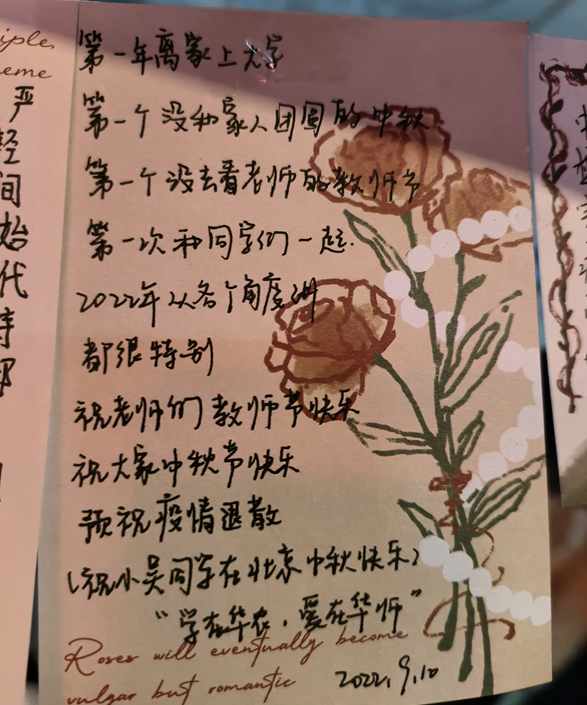 iple,
eme
严
轻
间
始
代
第一年离家上大学
第一个没和家人团圆的中秋
第一个没去看老师的教师节
第一次和同学们一起.
2022年从各个角度讲
都很特别
祝老师们教师节快乐
祝大家中秋节快乐
预祝疫情退散
(祝小吴同学在北京中秋快乐)
“学在华农·爱在华师”
Roses will eventually become
vulgar but romantic
2022.9.10